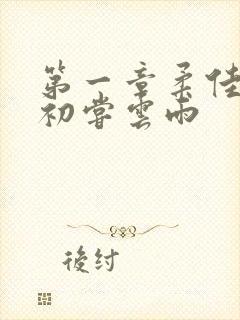 第一章柔佳
初尝雲雨
後紂